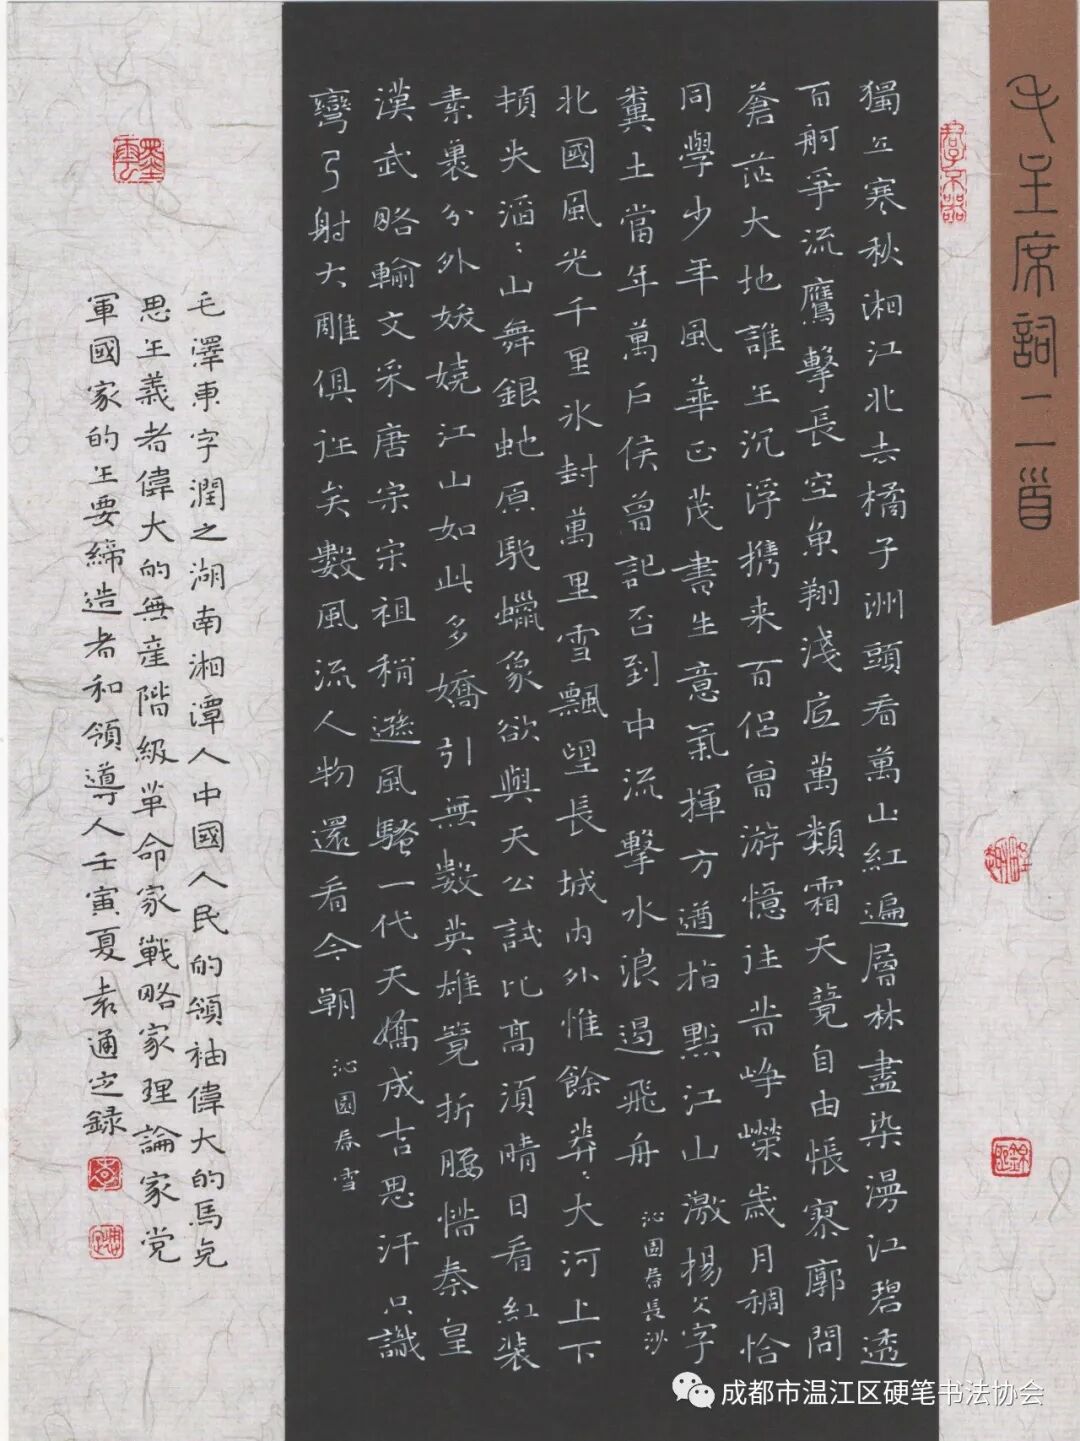 毛主席詞二首
獨立寒秋湘江北去橘子洲頭看萬山紅遍層林盡染漫江碧透
百舸爭流鷹擊長空魚翔淺底萬類霜天競自由悵寥廓問
蒼茫大地誰主沉浮携来百侶曾游憶往昔崢嶸歲月稠恰
同學少年風華正茂書生意氣揮方遒指點江山激揚文字
糞土當年萬戶侯曾記否到中流擊水浪遏飛舟
沁園春長沙
北國風光千里冰封萬里雪飄望長城內外惟餘莽：大河上下
頓失滔：山舞銀虵原馳蠟象欲與天公試比高須晴日看紅裝
素裹分外妖嬈江山如此多嬌引無數英雄競折腰惜秦皇
漢武略輸文采唐宗宋祖稍遜風騷一代天嬌成吉思汗只識
彎弓射大雕俱往矣數風流人物還看今朝
沁園春雪
毛澤東字潤之湖南湘潭人中國人民的領袖偉大的馬克
思主義者偉大的無產階級革命家戰略家理論家党
軍國家的主要締造者和領導人壬寅夏袁通之錄
成都市温江区硬笔书法协会